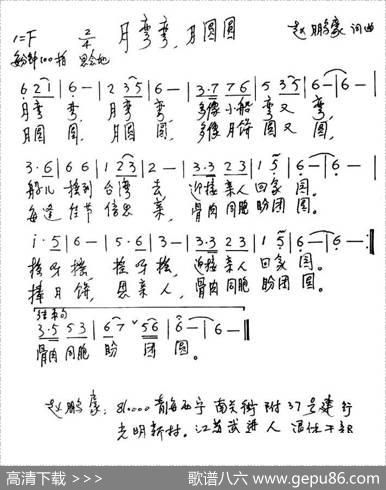 1=F 2/4 月弯弯,月圆圆 赵鹏豪 词曲
每分钟100拍 思念地
6 2 1 | 6 – | 2 3 5 | 6 – | 3·7 7 6 | 5 3 5 | 6 – | 6 – |
月弯 弯, 月弯 弯, 多像小船 弯又 弯,
月圆 圆, 月圆 圆, 多像月饼 圆又 圆,
3·6 | 6 6 | 1 2 3 | 2 – | 3·3 2 3 | 1 5 | 6 – | 6 – |
船儿 摇到 台湾 去, 迎接亲人 回家 圆。
每逢 佳节 倍思 亲, 骨肉同胞 盼团 圆。
1·5 | 6 – | 5·6 | 3 – | 3·3 2 3 | 1 5 | 6 – | 6 – :||
摇呀摇, 摇呀摇, 迎接亲人 回家 圆。
捧月饼, 思亲人, 骨肉同胞 盼团 圆。
结束句
3·5 5 3 | 6 7 5 6 | 6 – | 6 – ||
骨肉同胞 盼 团 圆。
赵鹏豪: 810000 青海西宁 南关街 附37号建行
光明新村。江苏武进人 退休干部
高清下载 >>> 歌谱八六 www.gepu86.com